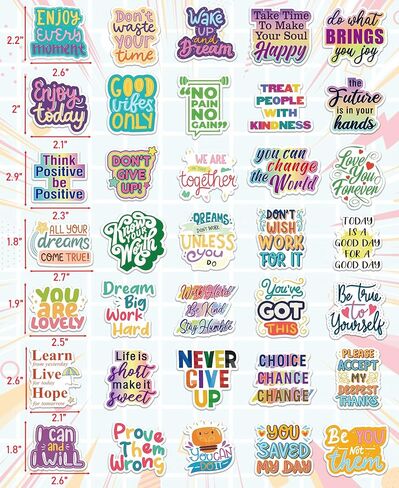 2.2"
ENJOY
every
moment
Don't
waste
YOUR
time.
Wake
UP
and
Dream
Take Time
To Make
Your Soul
Happy
do what
BRINGS
you joy
2.6"
2"
Enjoy
today
GOOD
vibes
ONLY
"NO
PAIN
NO
GAIN"
TREAT
PEOPLE
WITH
KINDNESS
the
Future
is in your
hands
2.1"
2.9"
Think
Positive
be
Positive
DON'T
GIVE
UP!
WE ARE
together
you can
change
the World
Love
You
Forever
2.3"
1.8"
ALL YOUR
dreams
COME TRUE!
Know
Your
Worth
DREAMS
DON'T WORK
UNLESS
YOU
DO
DON'T
WISH
WORK
FOR IT
TODAY
IS A
GOOD DAY
FOR A
GOOD DAY
2.7"
1.9"
YOU
ARE
LOVELY
Dream
Big
Work
Hard
Work Hard
Be Kind
Stay Humble
You've
GOT
THIS
Be True
to
Yourself
2.5"
2.6"
Learn
from yesterday
Live
for today
Hope
for tomorrow
Life is
short
make it
sweet
NEVER
GIVE
UP
CHOICE
CHANCE
CHANGE
PLEASE
ACCEPT
MY
DEEPEST
THANKS
2.1"
1.8"
I can
and
WILL
Prove
Them
Wrong
YOU CAN
DO IT
YOU
SAVED
MY DAY
Be YOU
Not
Them
2.6"